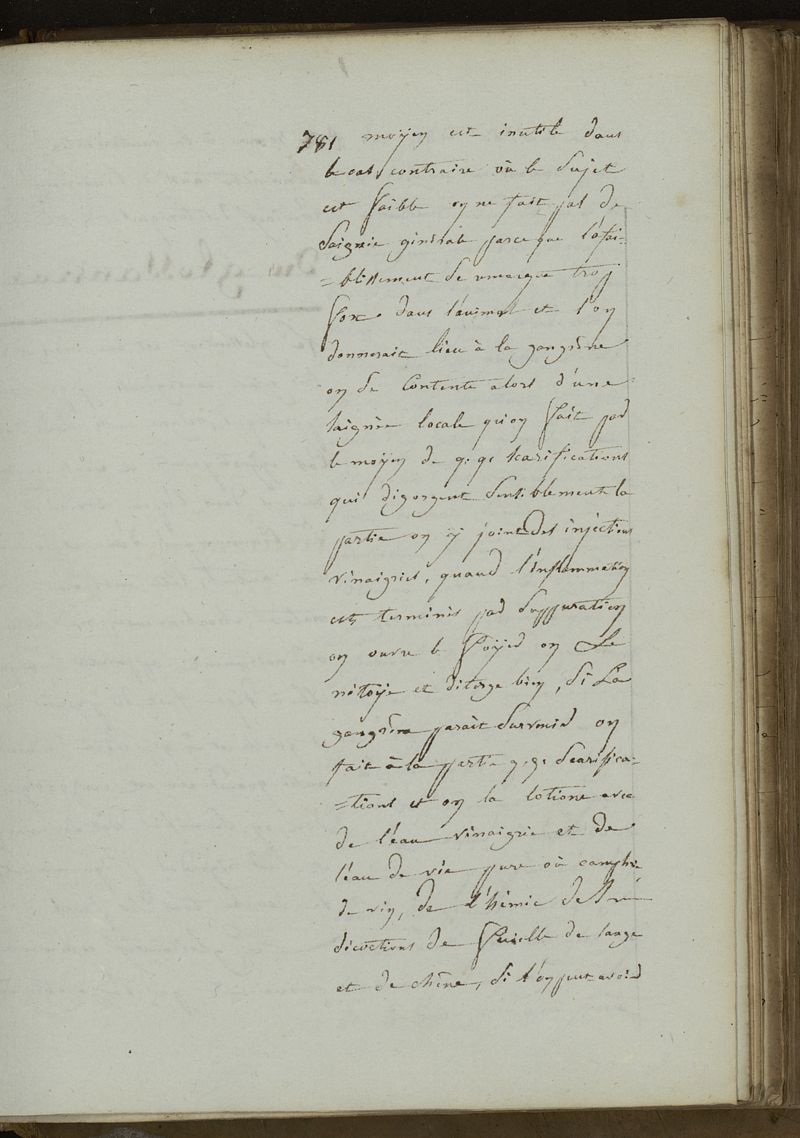 781 moÿen est inutile dans
le cas contraire où le sujet
est faible on ne fait pas de
saignée générale parceque l'afai-
=blissement se remarque trop
fort dans l'animal et l'on
donnerait lieu à la gangrène
on se contente alors d'une
saignée locale qu'on fait par
le moÿen de q.q.s scarifications
qui dégorgent sensiblement la
partie on ÿ joint des injections
vinaigrées, quand l'inflammation
est terminée par suppuration
on ouvre le foÿer on le
nétoÿe et déterge bien, si la
gangrène parait survenir on
fait à la partie q.q.s scarifica=
=tions et on la lotione avec
de l'eau vinaigrée et de
l'eau de vie pure où camphrée
de vin, de
décoctions de feuille de sauge
et de chêne, si l'on peut avoir